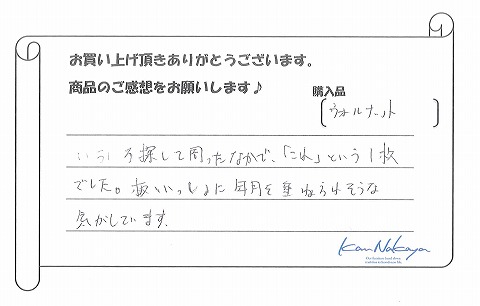 お買い上げ頂きありがとうございます。
商品のご感想をお願いします♪
購入品
[ウォルナット]
いろいろ探して回ったなかで、「これ」という1枚
でした。 いっしょに年月を重ねられそうな
気がしています。
Kan Nakaya